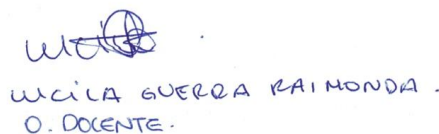 LUCILA GUERRA RAIMONDA.
O. DOCENTE.